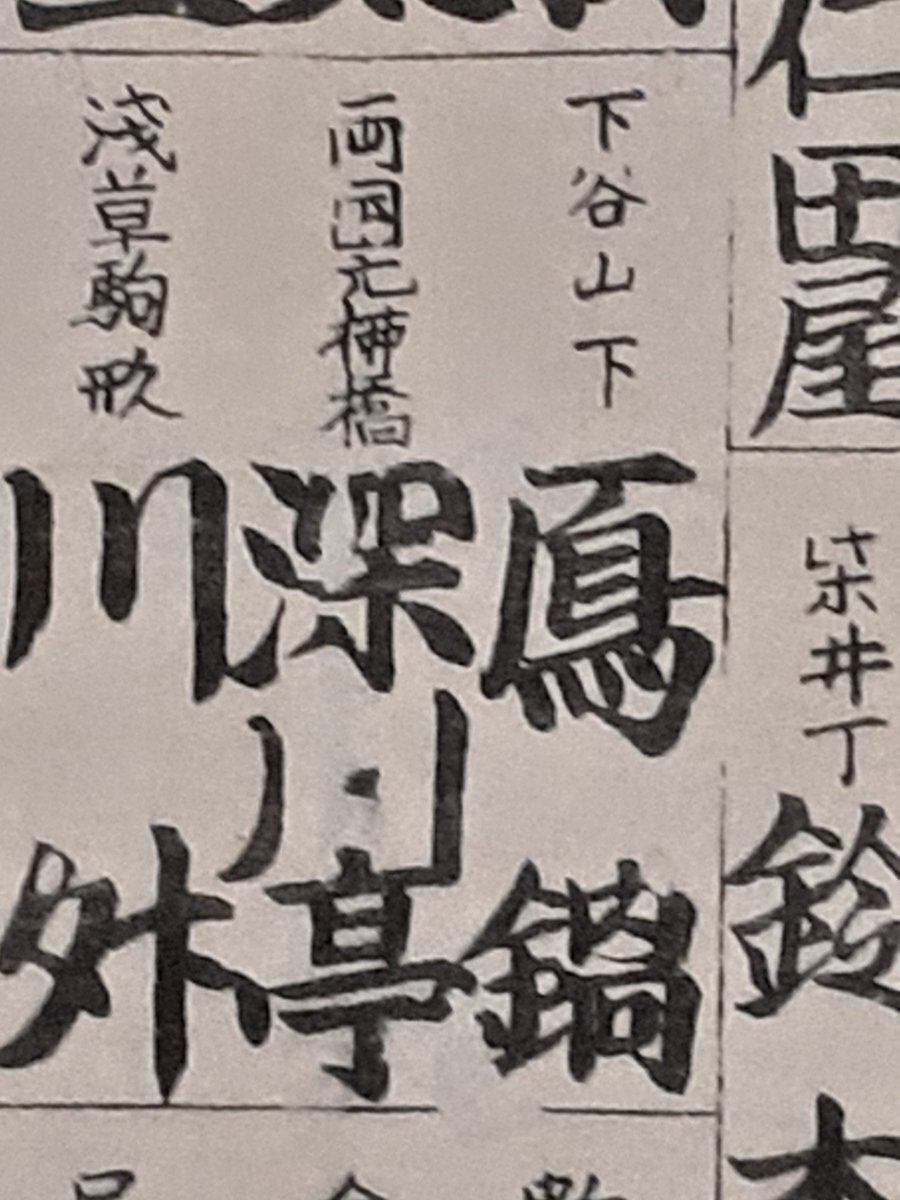 仁田屋
柴井丁
鈴
下谷山下
鳫鍋
両国元柳橋
深川亭
浅草駒形
川舛